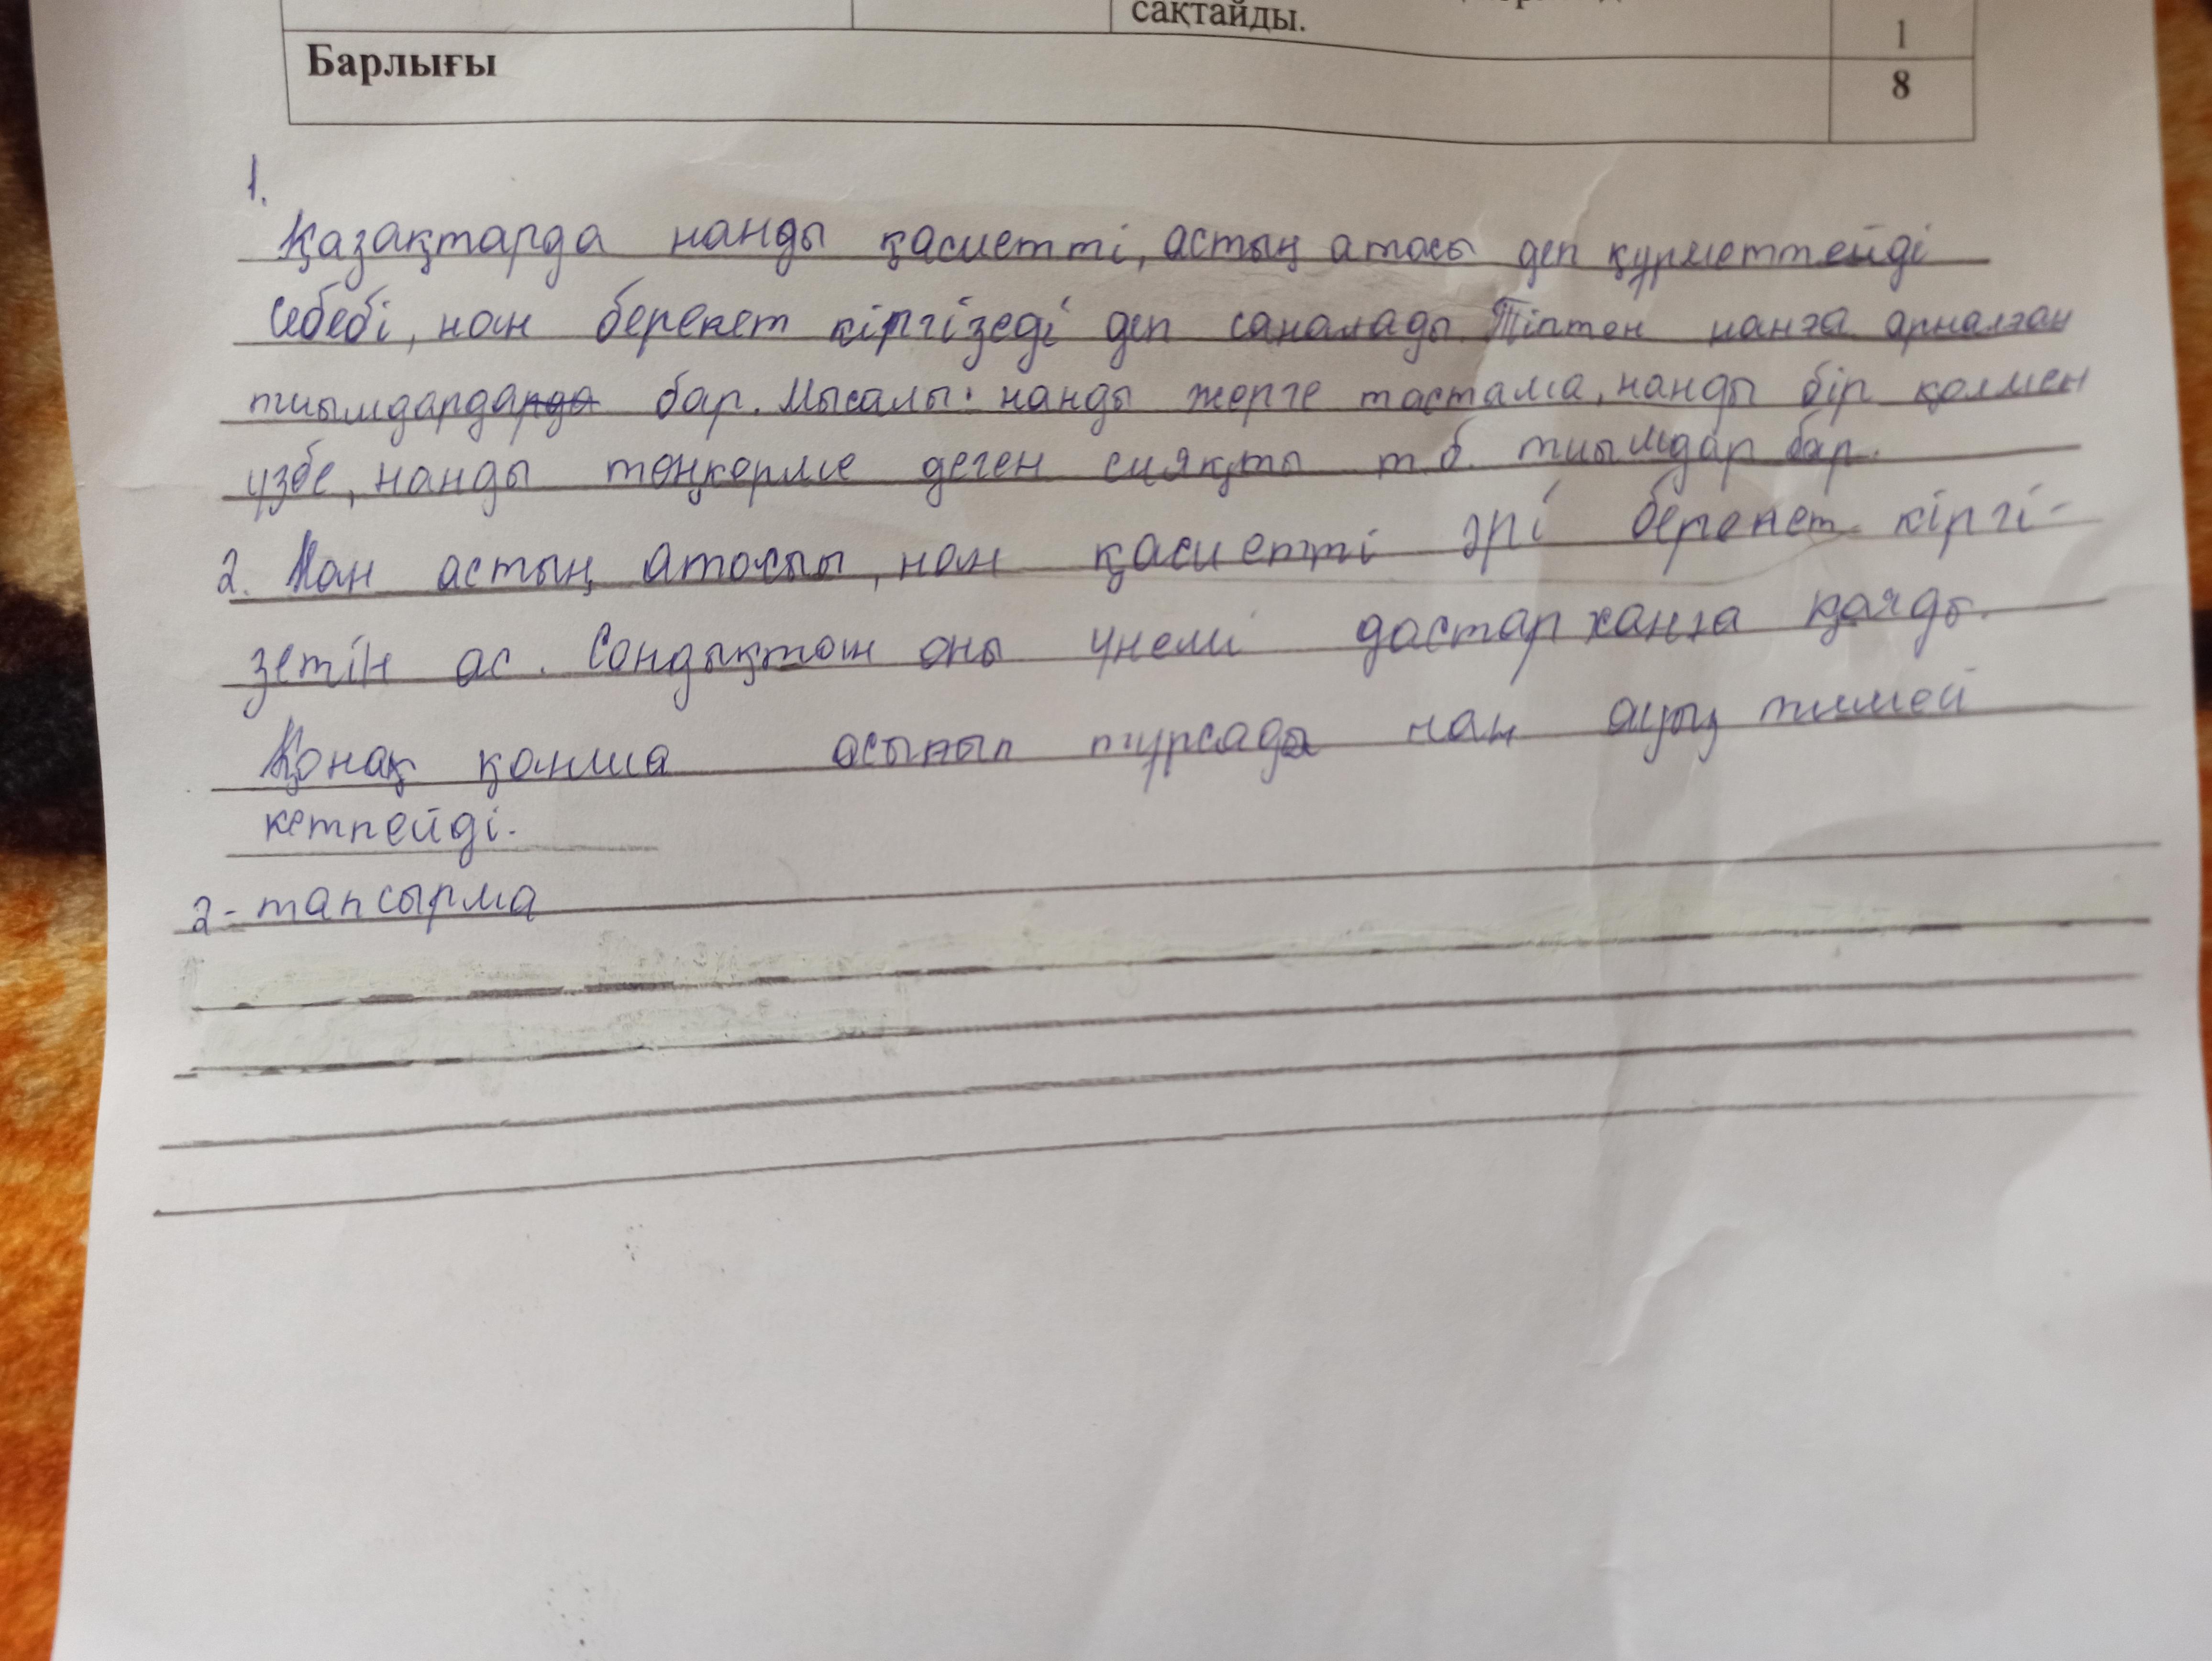 сақтайды.
1
Барлығы
8
1.
Қазақтарда нанды қасиетті, астың атасы деп құрметтейді
себебі, нан берекет кіргізеді деп саналады. Тіптен нанға арналған
тиымдарда бар. Мысалы: нанды жерге тастама, нанды бір қолмен
үзбе, нанды төңкерме деген сияқты т.б. тиымдар бар.
2. Нан астың атасы, нан қасиетті әрі берекет кіргі-
зетін ас. Сондықтан оны үнемі дастарханға қояды.
Қонақ қанша асынып тұрсада нан ауыз тимей
кетпейді.
2-тапсырма